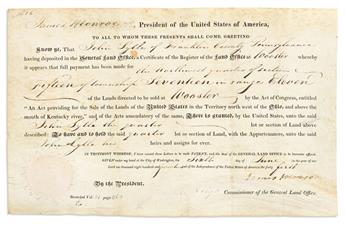 James Monroe President of the United States of America,
TO ALL TO WHOM THESE PRESENTS SHALL COME GREETING:
Know ye, That John Lytle of Franklin County Pennsylvania
having deposited in the General Land Office, a Certificate of the Register of the Land Office at Wooster whereby
it appears that full payment has been made for the quarter of section
of township Seventeen in range Eleven
of the Lands directed to be sold at Wooster by the Act of Congress, entitled
"An Act providing for the Sale of the Lands of the United States in the Territory north west of the Ohio, and above the
mouth of Kentucky river," and of the Acts amendatory of the same, There is granted, by the United States, unto the said
John Lytle the quarter lot or section of Land above
described: To have and to hold the said quarter lot or section of Land, with the Appurtenances, unto the said
John Lytle his heirs and assigns for ever.
IN TESTIMONY WHEREOF, I have caused these Letters to be made PATENT, and the SEAL of the GENERAL LAND OFFICE to be hereunto
GIVEN under my hand at the City of Washington, the day of June in the year of our
Lord one thousand eight hundred and and of the Independence of the United States of America the forty
By the President, James Monroe
Commissioner of the General Land Office.
Recorded Vol. page